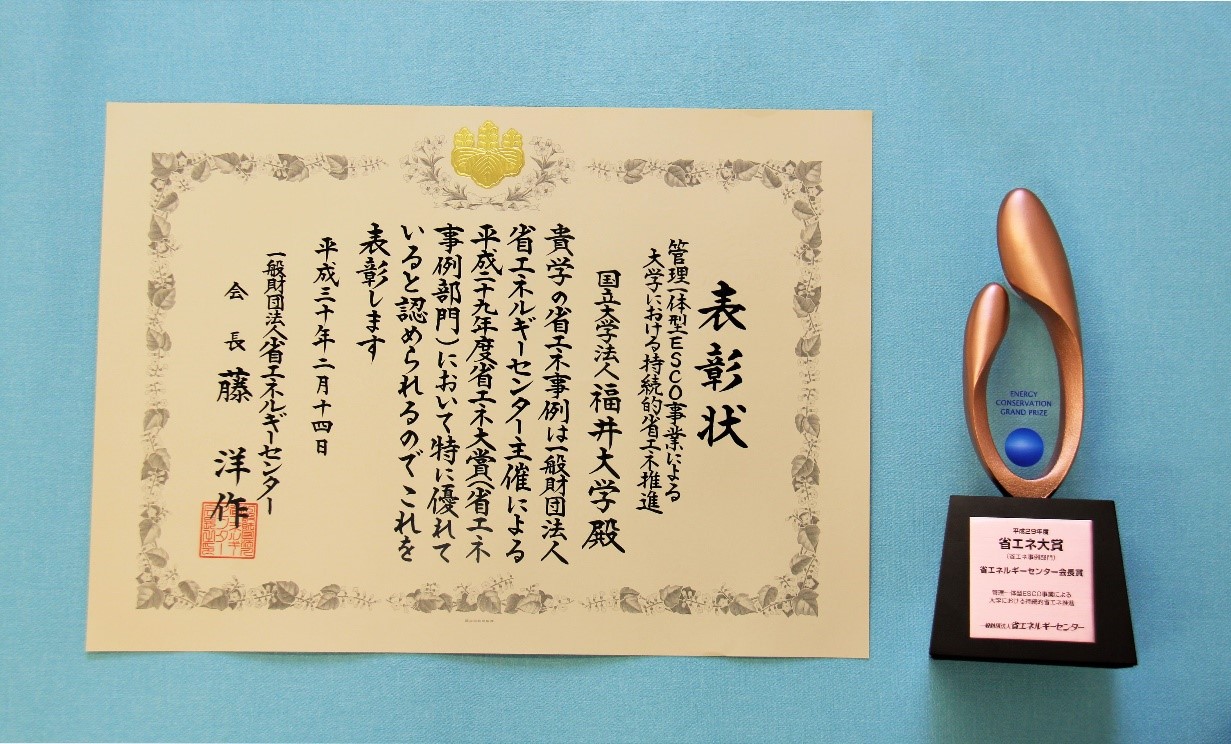 表彰状
管理一体型ESCO事業による
大学における持続的省エネ推進
国立大学法人福井大学殿
貴学の省エネ事例は一般財団法人
省エネルギーセンター主催による
平成二十九年度省エネ大賞(省エネ
事例部門)において特に優れて
いると認められるのでこれを
表彰します
平成三十年二月十四日
一般財団法人省エネルギーセンター
会長 藤 洋作
ENERGY
CONSERVATION
GRAND PRIZE
平成29年度
省エネ大賞
(省エネ事例部門)
省エネルギーセンター会長賞
管理一体型ESCO事業による
大学における持続的省エネ推進
一般財団法人省エネルギーセンター